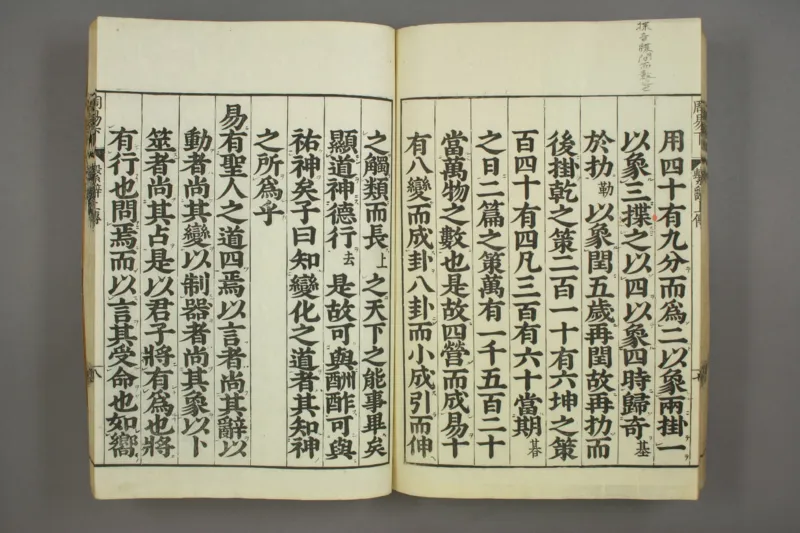 用四十有九分而爲二以象兩掛一
以象三揲之以四以象四時歸奇基
於扐勒以象閏五歲再閏故再扐而
後掛乾之策二百一十有六坤之策
百四十有四凡三百有六十當期朞
之日二篇之策萬有一千五百二十
當萬物之數也是故四營而成易十
有八變而成卦八卦而小成引而伸
之觸類而長上之天下之能事畢矣
顯道神德行去是故可與酬酢可與
祐神矣子曰知變化之道者其知神
之所爲乎
易有聖人之道四焉以言者尚其辭以
動者尚其變以制器者尚其象以卜
筮者尚其占是以君子將有爲也將
有行也問焉而以言其受命也如嚮
周易下 繫辭上傳 八